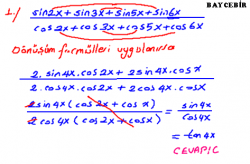 BAY CEBİR
1-/ sin2x + sin3x + sin5x + sin6x
cos2x + cos3x + cos5x + cos6x
Dönüşüm formülleri uygulanırsa
2.sin4x.cos2x + 2sin4x.cosx
2.cos4x.cos2x + 2cos4x.cosx
2sin4x(cos2x + cosx) = sin4x
2cos4x(cos2x + cosx) cos4x
= tan4x
CEVAP:C